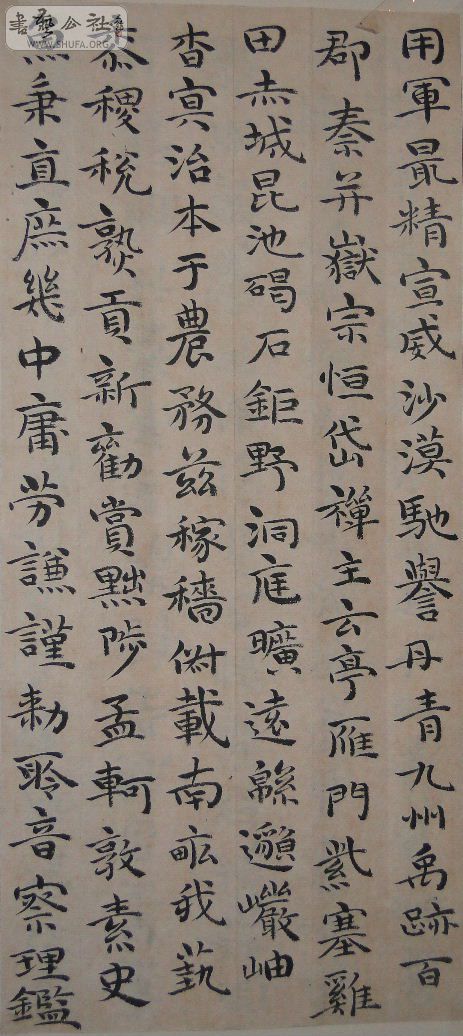 書藝公社
SHUFA.ORG
用軍最精宣威沙漠馳譽丹青九州禹跡百
郡秦并嶽宗恒岱禪主云亭雁門紫塞雞
田赤城昆池碣石鉅野洞庭曠遠緜邈巖岫
杳冥治本于農務茲稼穡俶載南畝我藝
黍稷稅熟貢新勸賞黜陟孟軻敦素史
魚秉直庶幾中庸勞謙謹勑聆音察理鑑